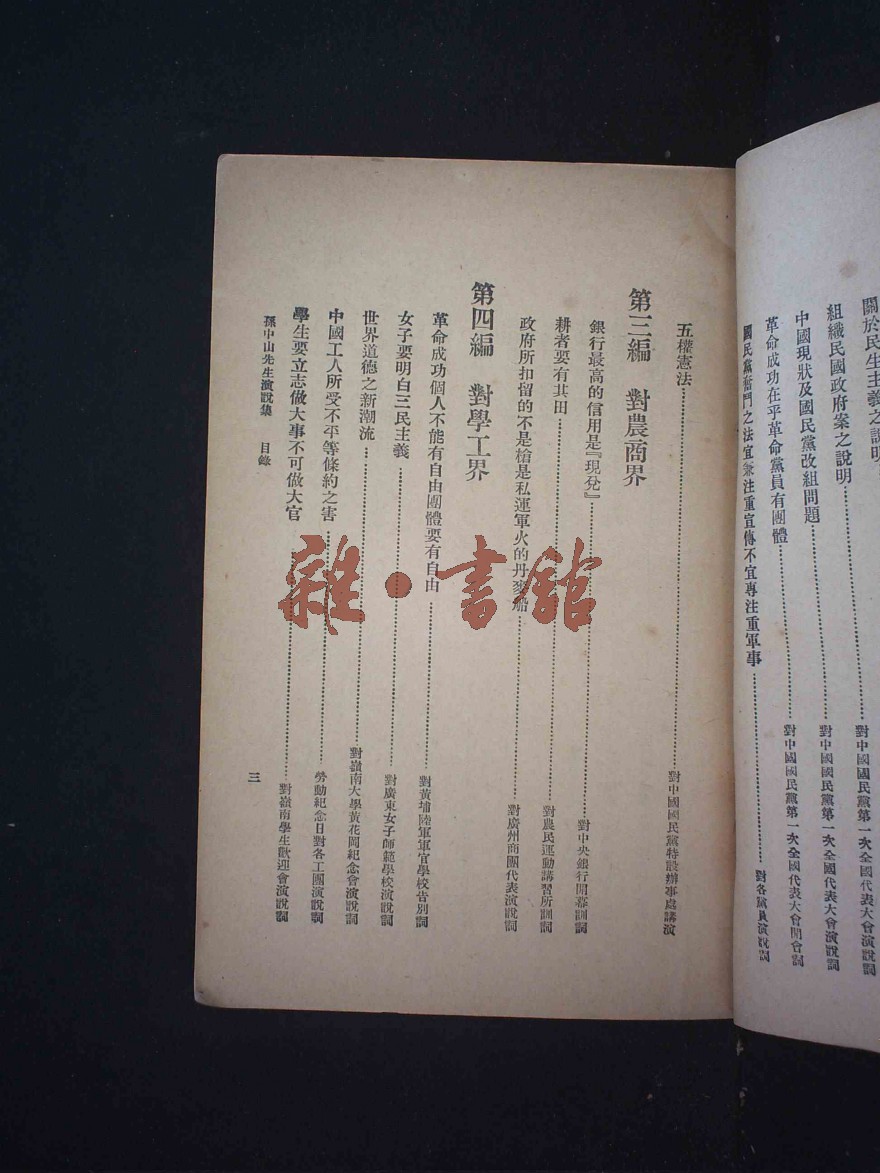 關於民生主義之說明
對中國國民黨第一次全國代表大會演說詞
組織民國政府案之說明……對中國國民黨第一次全國代表大會演說詞
中國現狀及國民黨改組問題……對中國國民黨第一次全國代表大會演說詞
革命成功在乎革命黨員有團體……對中國國民黨第一次全國代表大會開會詞
國民黨奮鬥之法宜兼注重宣傳不宜專注重軍事……對各黨員演說詞
五權憲法……對中國國民黨特設辦事處講演
第三編 對農商界
銀行最高的信用是『現兌』……對中央銀行開幕訓詞
耕者要有其田……對農民運動講習所訓詞
政府所扣留的不是槍是私運軍火的丹麥船……對廣州商團代表演說詞
第四編 對學工界
革命成功個人不能有自由團體要有自由……對黃埔陸軍軍官學校告別詞
女子要明白三民主義……對廣東女子師範學校演說詞
世界道德之新潮流……對嶺南大學黃花岡紀念會演說詞
中國工人所受不平等條約之害……勞動紀念日對各工團演說詞
學生要立志做大事不可做大官……對嶺南學生歡迎會演說詞
孫中山先生演說集 目錄 三
雜·書館